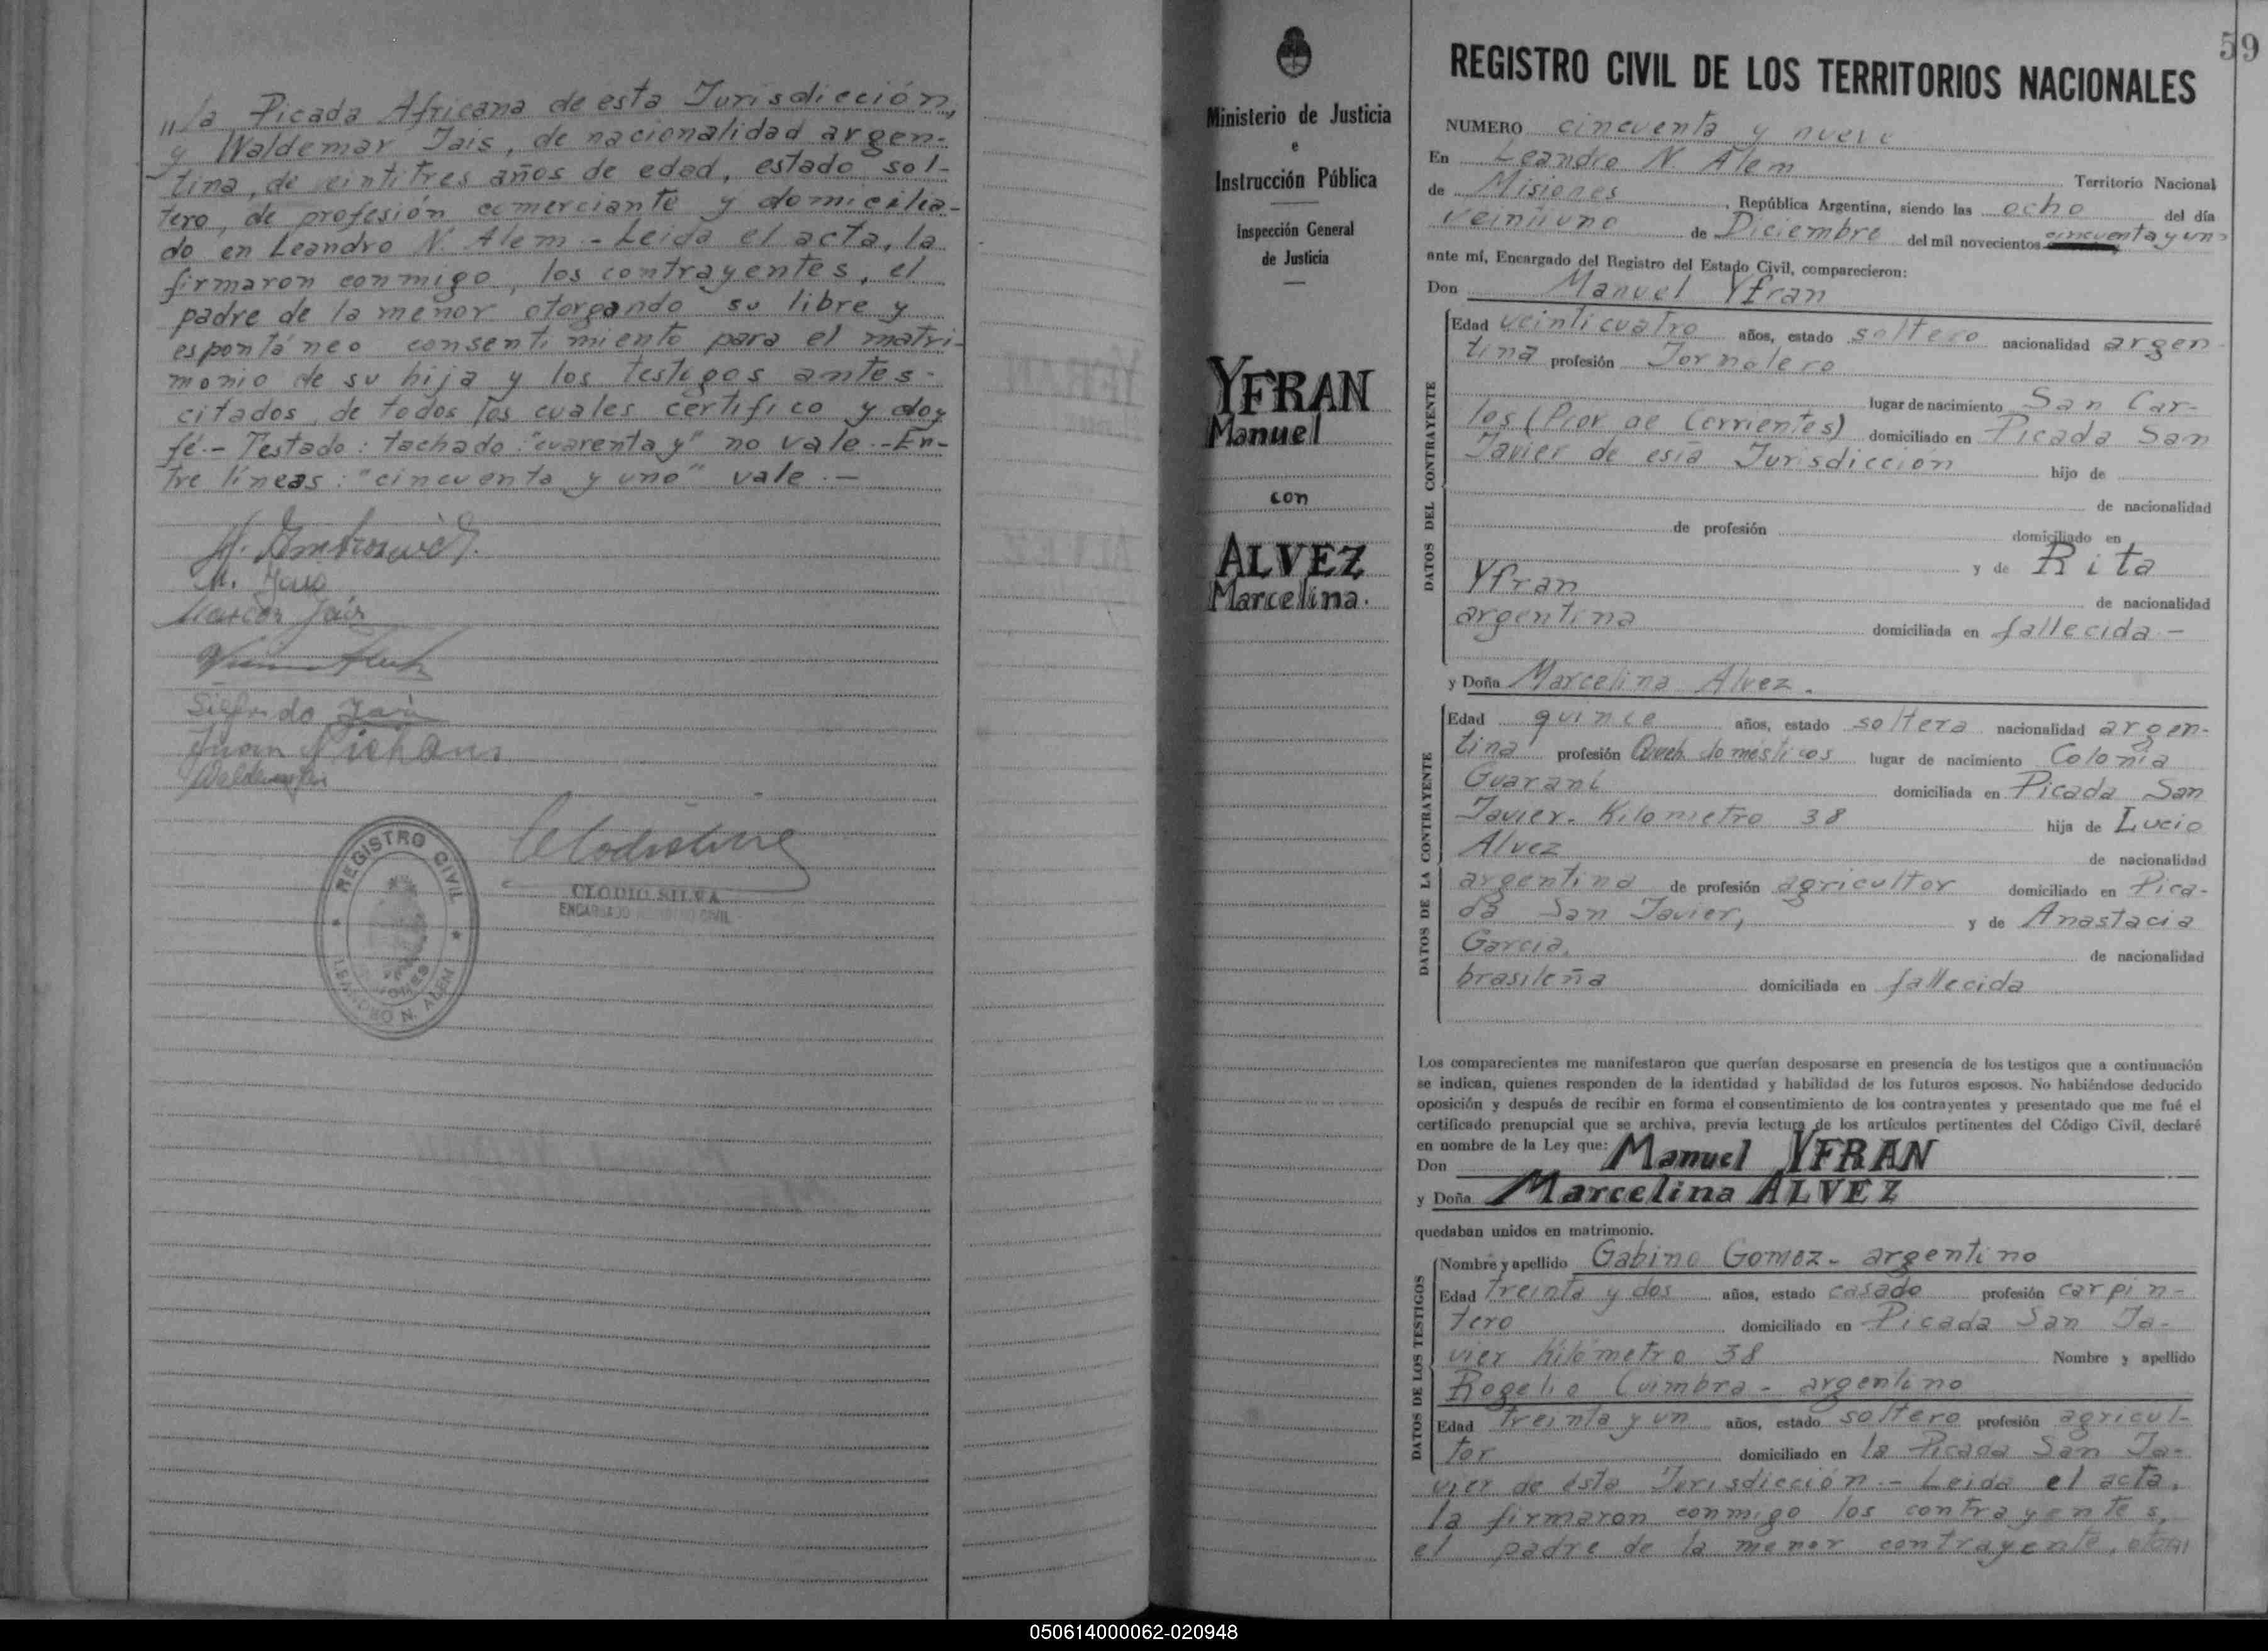 "la Picada Africana de esta Jurisdicción,
y Waldemar Jais, de nacionalidad argen-
tina, de veintitres años de edad, estado sol-
tero, de profesión comerciante y domicilia-
do en Leandro N. Alem - Leida el acta, la
firmaron conmigo, los contrayentes, el
padre de la menor otorgando su libre y
espontáneo consentimiento para el matri-
monio de su hija y los testigos antes-
citados, de todos los cuales certifico y doy
fé.- Testado: tachado: "cuarenta y" no vale.- En-
tre líneas: "cincuenta y uno" vale.-
Marcos Jais
Sigfrido Jais
Juan
REGISTRO CIVIL
LEANDRO N. ALEM
CLODIO SILVA
ENCARGADO REGISTRO CIVIL
Ministerio de Justicia
e
Instrucción Pública
Inspección General
de Justicia
YFRAN
Manuel
con
ALVEZ
Marcelina.
59
REGISTRO CIVIL DE LOS TERRITORIOS NACIONALES
NUMERO cincuenta y nueve
En Leandro N. Alem Territorio Nacional
de Misiones, República Argentina, siendo las ocho del día
veintiuno de Diciembre del mil novecientos cincuenta y uno
ante mí, Encargado del Registro del Estado Civil, comparecieron:
Don Manuel Yfran
DATOS DEL CONTRAYENTE
Edad veinticuatro años, estado soltero nacionalidad argen
tina profesión Jornalero
lugar de nacimiento San Car-
los (Prov de Corrientes) domiciliado en Picada San
Javier de esta Jurisdicción hijo de
de nacionalidad
de profesión domiciliado en
y de Rita
Yfran de nacionalidad
argentina domiciliada en fallecida -
y Doña Marcelina Alvez.
DATOS DE LA CONTRAYENTE
Edad quince años, estado soltera nacionalidad argen-
tina profesión Queh. domésticos lugar de nacimiento Colonia
Guaraní domiciliada en Picada San
Javier. Kilometro 38 hija de Lucio
Alvez de nacionalidad
argentino de profesión agricultor domiciliado en Pica-
da San Javier, y de Anastacia
Garcia, de nacionalidad
brasileña domiciliada en fallecida
Los comparecientes me manifestaron que querían desposarse en presencia de los testigos que a continuación
se indican, quienes responden de la identidad y habilidad de los futuros esposos. No habiéndose deducido
oposición y después de recibir en forma el consentimiento de los contrayentes y presentado que me fué el
certificado prenupcial que se archiva, previa lectura de los artículos pertinentes del Código Civil, declaré
en nombre de la Ley que:
Don Manuel YFRAN
y Doña Marcelina ALVEZ
quedaban unidos en matrimonio.
DATOS DE LOS TESTIGOS
Nombre y apellido Gabino Gomez - argentino
Edad treinta y dos años, estado casado profesión carpin-
tero domiciliado en Picada San Ja-
vier Kilómetro 38 Nombre y apellido
Rogelio Cuimbra - argentino
Edad treinta y un años, estado soltero profesión agricul-
tor domiciliado en la Picada San Ja-
vier de ésta Jurisdicción.- Leida el acta,
la firmaron conmigo los contrayentes,
el padre de la menor contrayente,
050614000062-020948